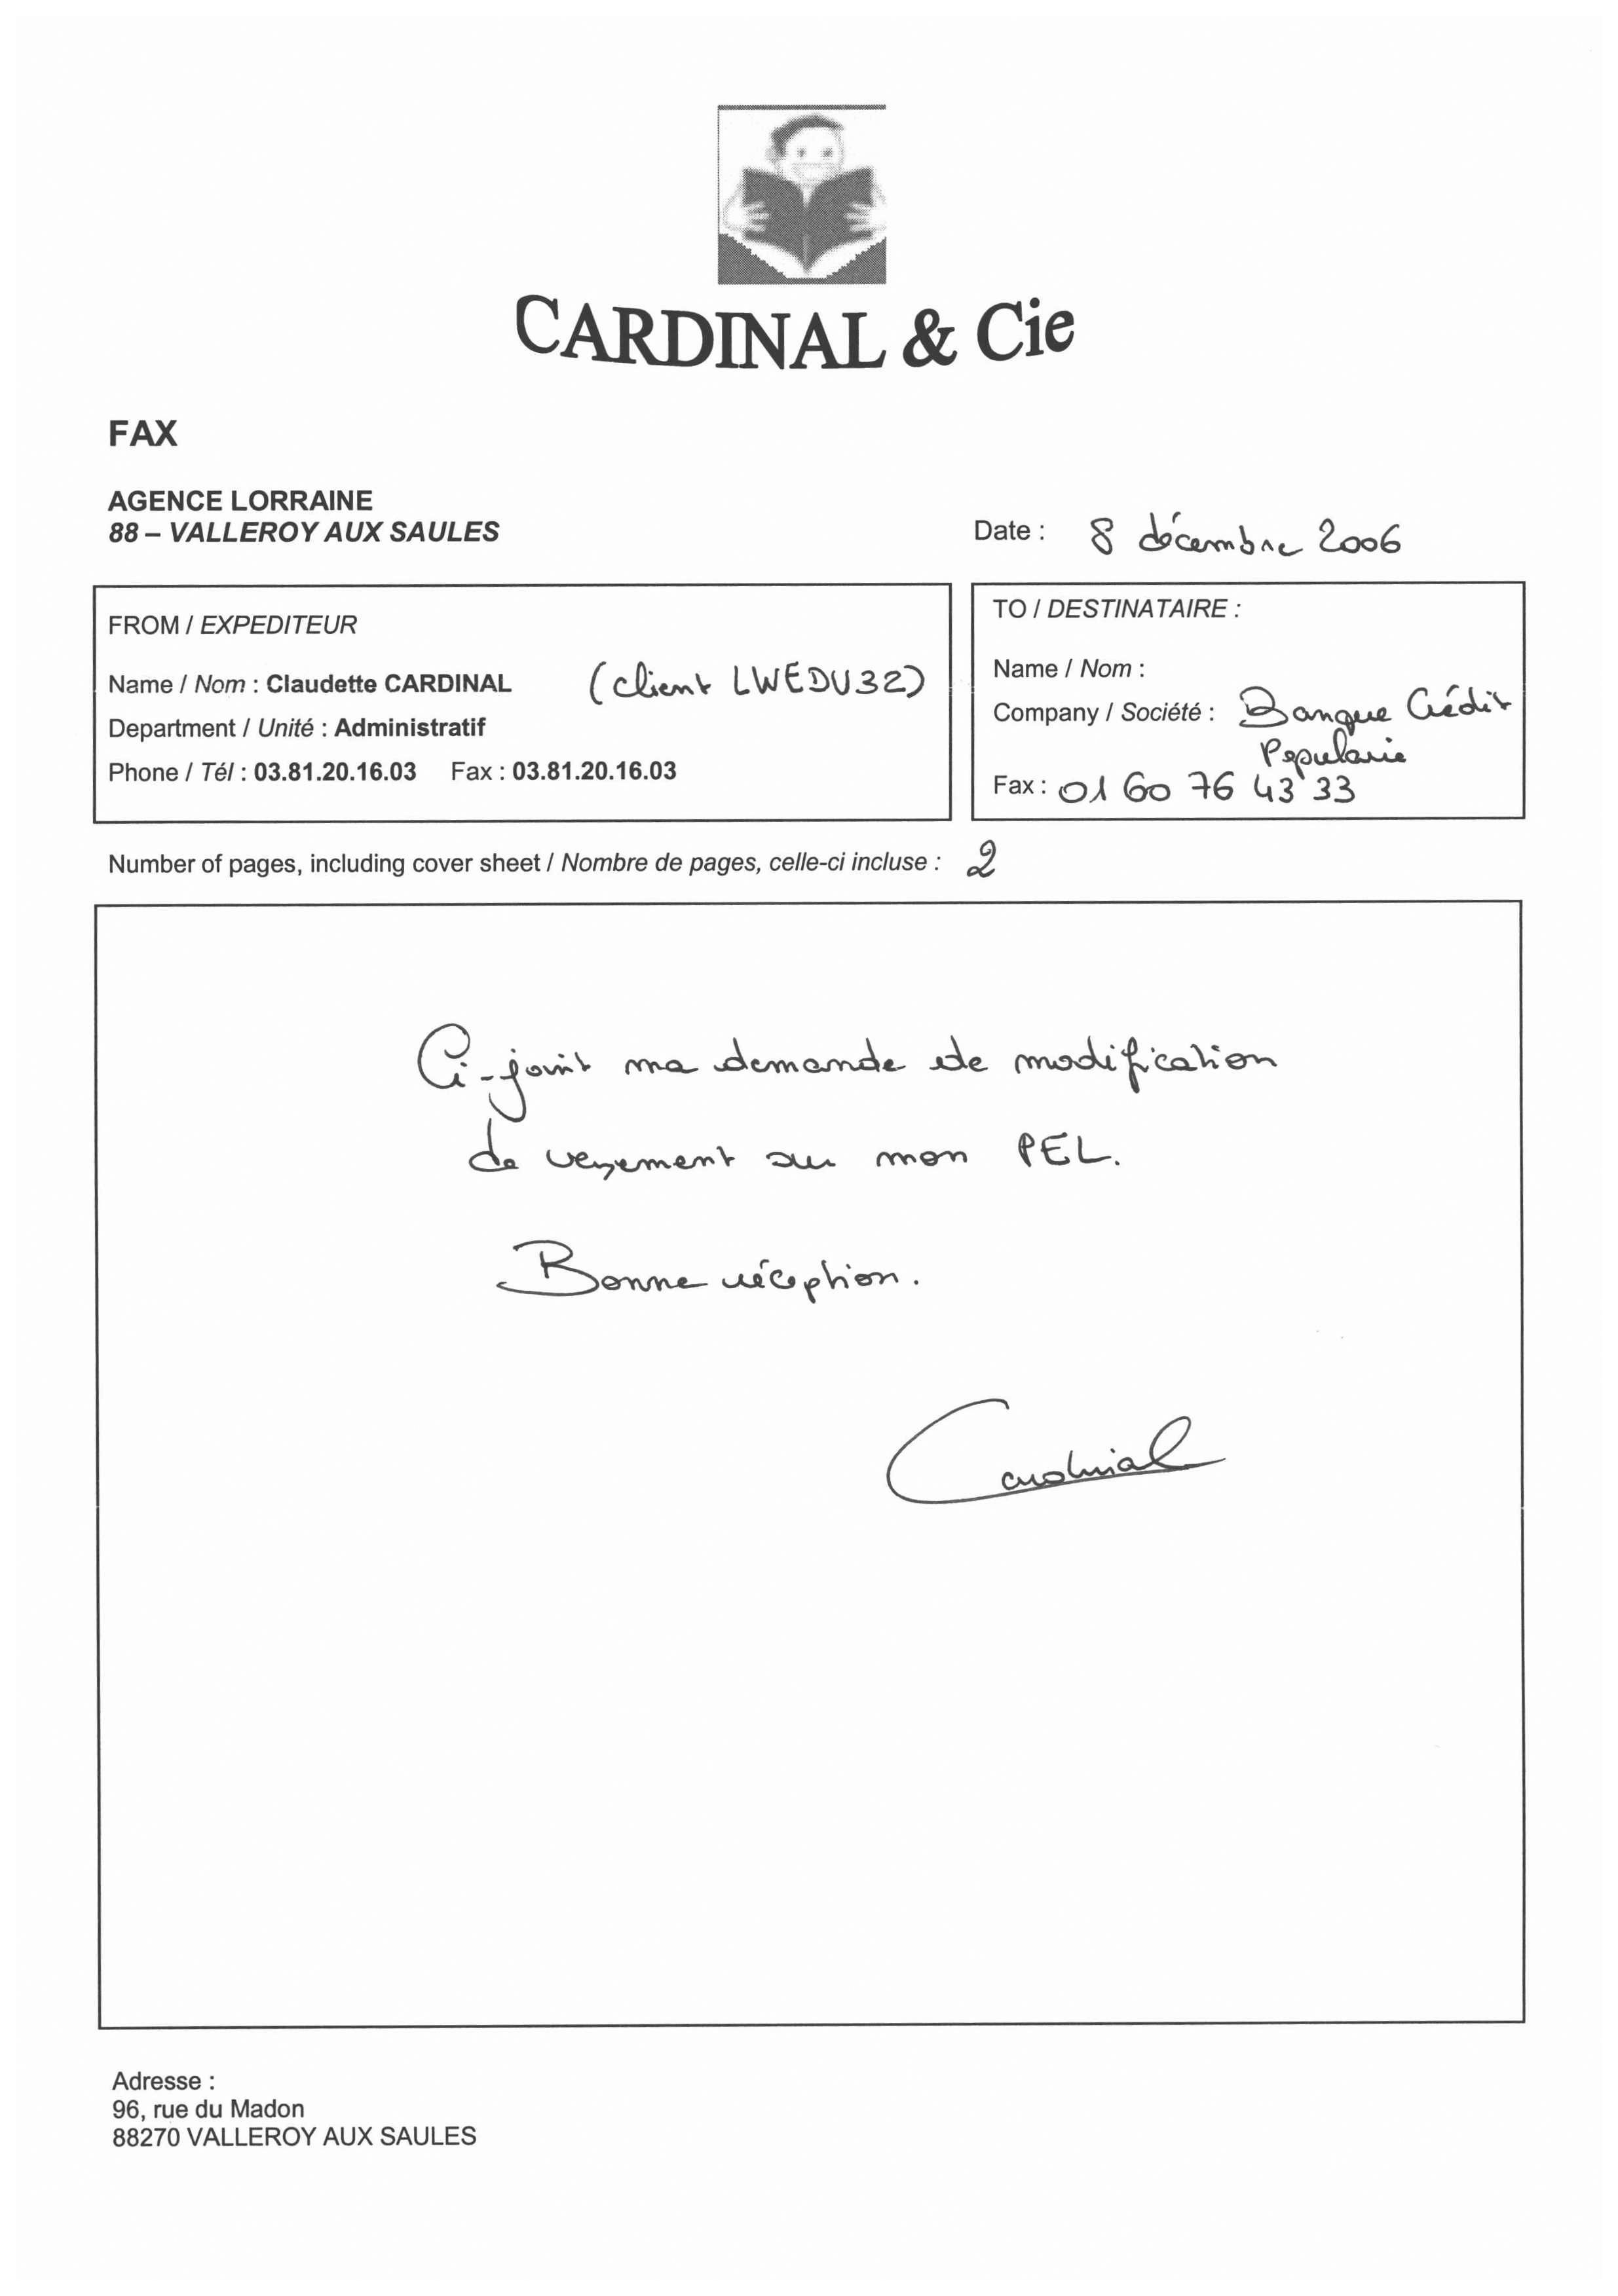 CARDINAL & Cie
FAX
AGENCE LORRAINE
88 – VALLEROY AUX SAULES
Date : 8 décembre 2006
FROM / EXPEDITEUR
Name / Nom : Claudette CARDINAL (client LWEDU32)
Department / Unité : Administratif
Phone / Tél : 03.81.20.16.03 Fax : 03.81.20.16.03
TO / DESTINATAIRE :
Name / Nom :
Company / Société : Banque Crédit
Populaire
Fax : 01 60 76 43 33
Number of pages, including cover sheet / Nombre de pages, celle-ci incluse : 2
Ci-joint ma demande de modification
de versement sur mon PEL.
Bonne réception.
Cardinal
Adresse :
96, rue du Madon
88270 VALLEROY AUX SAULES